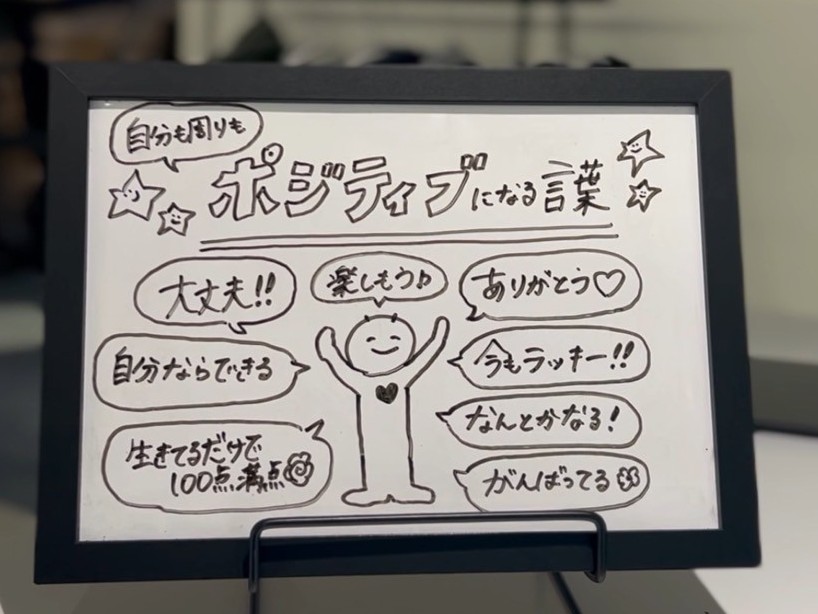 自分も周りも
ポジティブになる言葉
大丈夫!!
楽しもう♪
ありがとう♡
自分ならできる
今もラッキー!!
生きてるだけで
100点満点
なんとかなる!
がんばってる